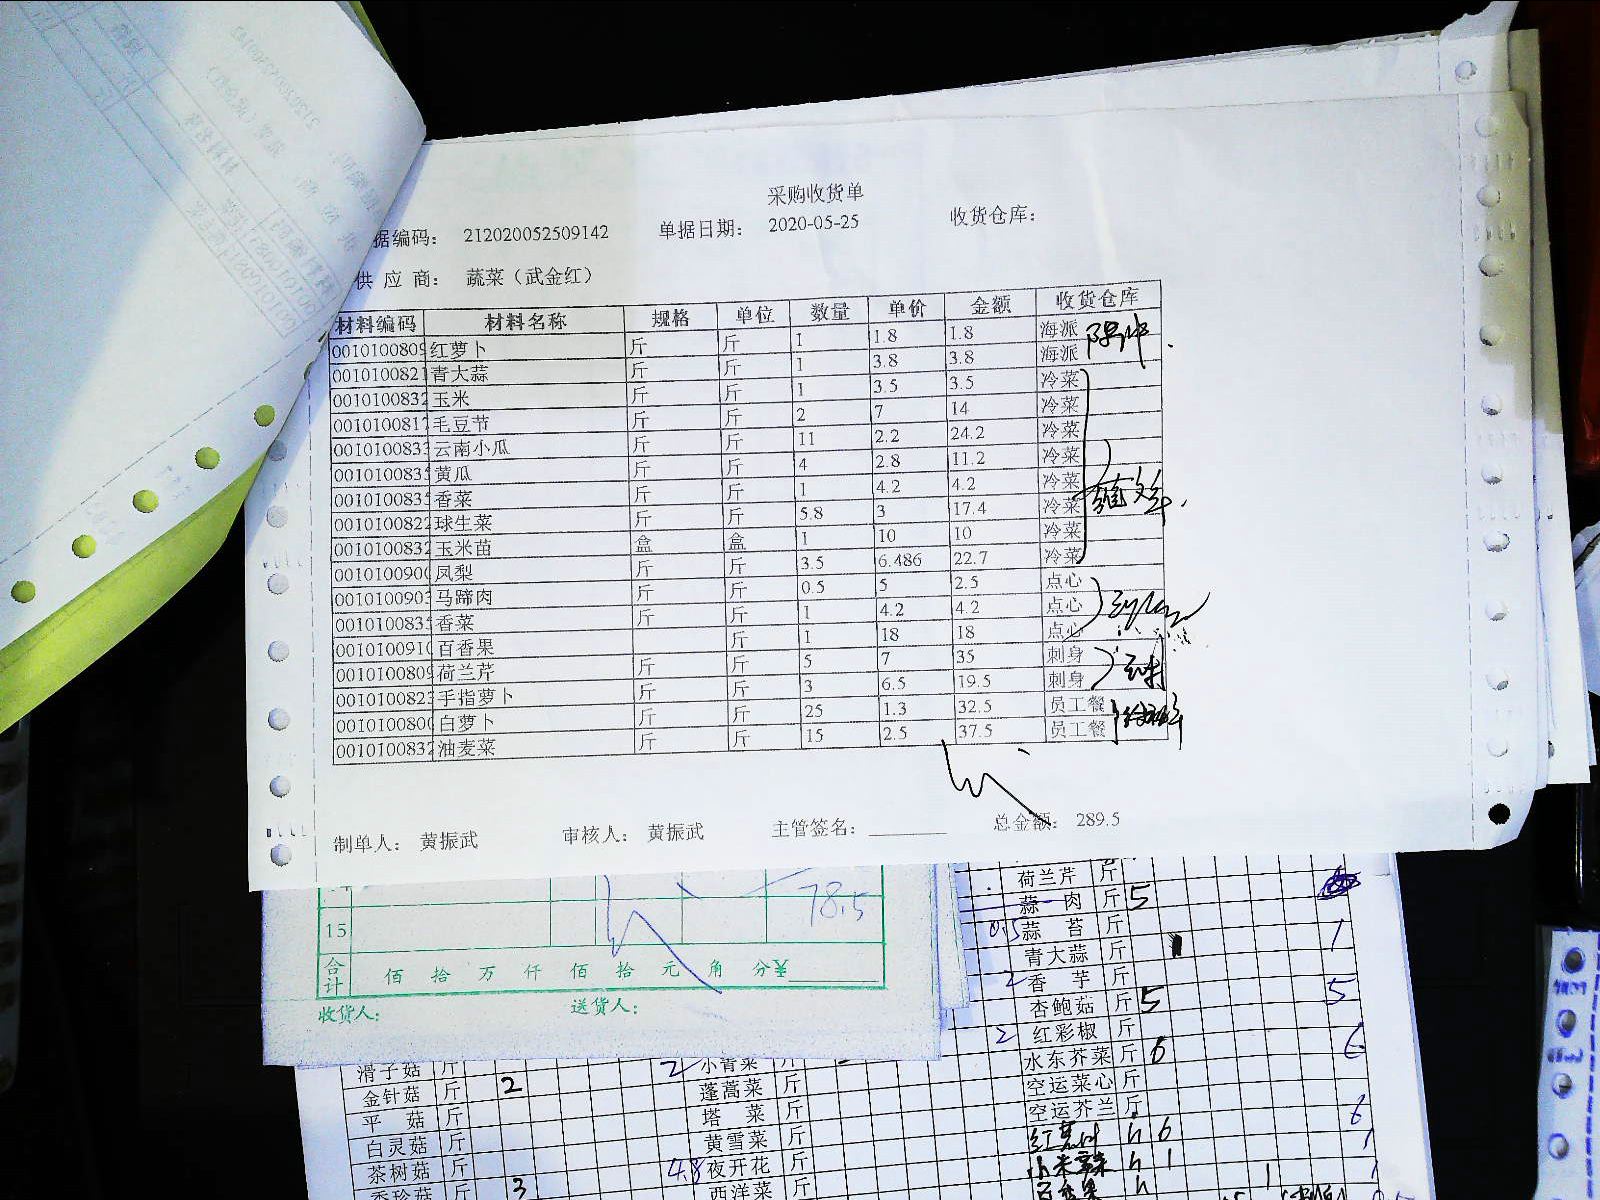 采购收货单
据编码： 212020052509142 单据日期： 2020-05-25 收货仓库：
供 应 商： 蔬菜（武金红）
材料编码 材料名称 规格 单位 数量 单价 金额 收货仓库
0010100809 红萝卜 斤 斤 1 1.8 1.8 海派
0010100821 青大蒜 斤 斤 1 3.8 3.8 海派
0010100832 玉米 斤 斤 1 3.5 3.5 冷菜
0010100817 毛豆节 斤 斤 2 7 14 冷菜
001010083 云南小瓜 斤 斤 11 2.2 24.2 冷菜
001010083 黄瓜 斤 斤 4 2.8 11.2 冷菜
001010083 香菜 斤 斤 1 4.2 4.2 冷菜
0010100822 球生菜 斤 斤 5.8 3 17.4 冷菜
0010100832 玉米苗 盒 盒 1 10 10 冷菜
001010090 凤梨 斤 斤 3.5 6.486 22.7 冷菜
001010090 马蹄肉 斤 斤 0.5 5 2.5 点心
001010083 香菜 斤 斤 1 4.2 4.2 点心
001010091 百香果 斤 1 18 18 点心
0010100809 荷兰芹 斤 斤 5 7 35 刺身
001010082 手指萝卜 斤 斤 3 6.5 19.5 刺身
001010080 白萝卜 斤 斤 25 1.3 32.5 员工餐
0010100832 油麦菜 斤 斤 15 2.5 37.5 员工餐
制单人： 黄振武 审核人： 黄振武 主管签名： 总金额： 289.5
78.5
15
合计 佰 拾 万 仟 佰 拾 元 角 分¥
收货人： 送货人：
荷兰芹 斤
蒜 肉 斤 5
0.5 蒜 苔 斤 1
青大蒜 斤 1
2 香 芋 斤
杏鲍菇 斤 5 5
2 红彩椒 斤
水东芥菜 斤 6 6
空运菜心 斤
空运芥兰 斤
滑子菇 斤 2 小青菜 斤
金针菇 斤 2 蓬蒿菜 斤
平 菇 斤 塔 菜 斤
白灵菇 斤 黄雪菜 斤
茶树菇 斤 4.8 夜开花 斤
小米辣 1
秀珍菇 斤 3 西洋菜 斤